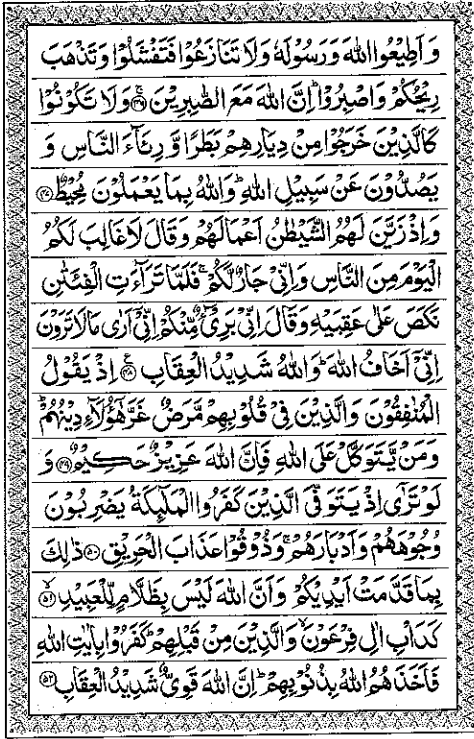 وَاَطِيْعُوا اللّٰهَ وَرَسُوْلَهٗ وَلَا تَنَازَعُوْا فَتَفْشَلُوْا وَتَذْهَبَ
رِيْحُكُمْ وَاصْبِرُوْا ؕ اِنَّ اللّٰهَ مَعَ الصّٰبِرِيْنَ ﴿۴۶﴾ وَلَا تَكُوْنُوْا
كَالَّذِيْنَ خَرَجُوْا مِنْ دِيَارِهِمْ بَطَرًا وَّ رِئَآءَ النَّاسِ وَ
يَصُدُّوْنَ عَنْ سَبِيْلِ اللّٰهِ ؕ وَاللّٰهُ بِمَا يَعْمَلُوْنَ مُحِيْطٌ ﴿۴۷﴾
وَاِذْ زَيَّنَ لَهُمُ الشَّيْطٰنُ اَعْمَالَهُمْ وَقَالَ لَا غَالِبَ لَكُمُ
الْيَوْمَ مِنَ النَّاسِ وَاِنِّيْ جَارٌ لَّكُمْ ۚ فَلَمَّا تَرَآءَتِ الْفِئَتٰنِ
نَكَصَ عَلٰى عَقِبَيْهِ وَقَالَ اِنِّيْ بَرِيْٓءٌ مِّنْكُمْ اِنِّيْٓ اَرٰى مَا لَا تَرَوْنَ
اِنِّيْٓ اَخَافُ اللّٰهَ ؕ وَاللّٰهُ شَدِيْدُ الْعِقَابِ ﴿۴۸﴾ اِذْ يَقُوْلُ
الْمُنٰفِقُوْنَ وَالَّذِيْنَ فِيْ قُلُوْبِهِمْ مَّرَضٌ غَرَّ هٰٓؤُلَآءِ دِيْنُهُمْ ؕ
وَمَنْ يَّتَوَكَّلْ عَلَى اللّٰهِ فَاِنَّ اللّٰهَ عَزِيْزٌ حَكِيْمٌ ﴿۴۹﴾ وَ
لَوْ تَرٰٓى اِذْ يَتَوَفَّى الَّذِيْنَ كَفَرُوا الْمَلٰٓئِكَةُ يَضْرِبُوْنَ
وُجُوْهَهُمْ وَاَدْبَارَهُمْ ۚ وَذُوْقُوْا عَذَابَ الْحَرِيْقِ ﴿۵۰﴾ ذٰلِكَ
بِمَا قَدَّمَتْ اَيْدِيْكُمْ وَاَنَّ اللّٰهَ لَيْسَ بِظَلَّامٍ لِّلْعَبِيْدِ ﴿۵۱﴾
كَدَاْبِ اٰلِ فِرْعَوْنَ ۙ وَالَّذِيْنَ مِنْ قَبْلِهِمْ ؕ كَفَرُوْا بِاٰيٰتِ اللّٰهِ
فَاَخَذَهُمُ اللّٰهُ بِذُنُوْبِهِمْ ؕ اِنَّ اللّٰهَ قَوِيٌّ شَدِيْدُ الْعِقَابِ ﴿۵۲﴾